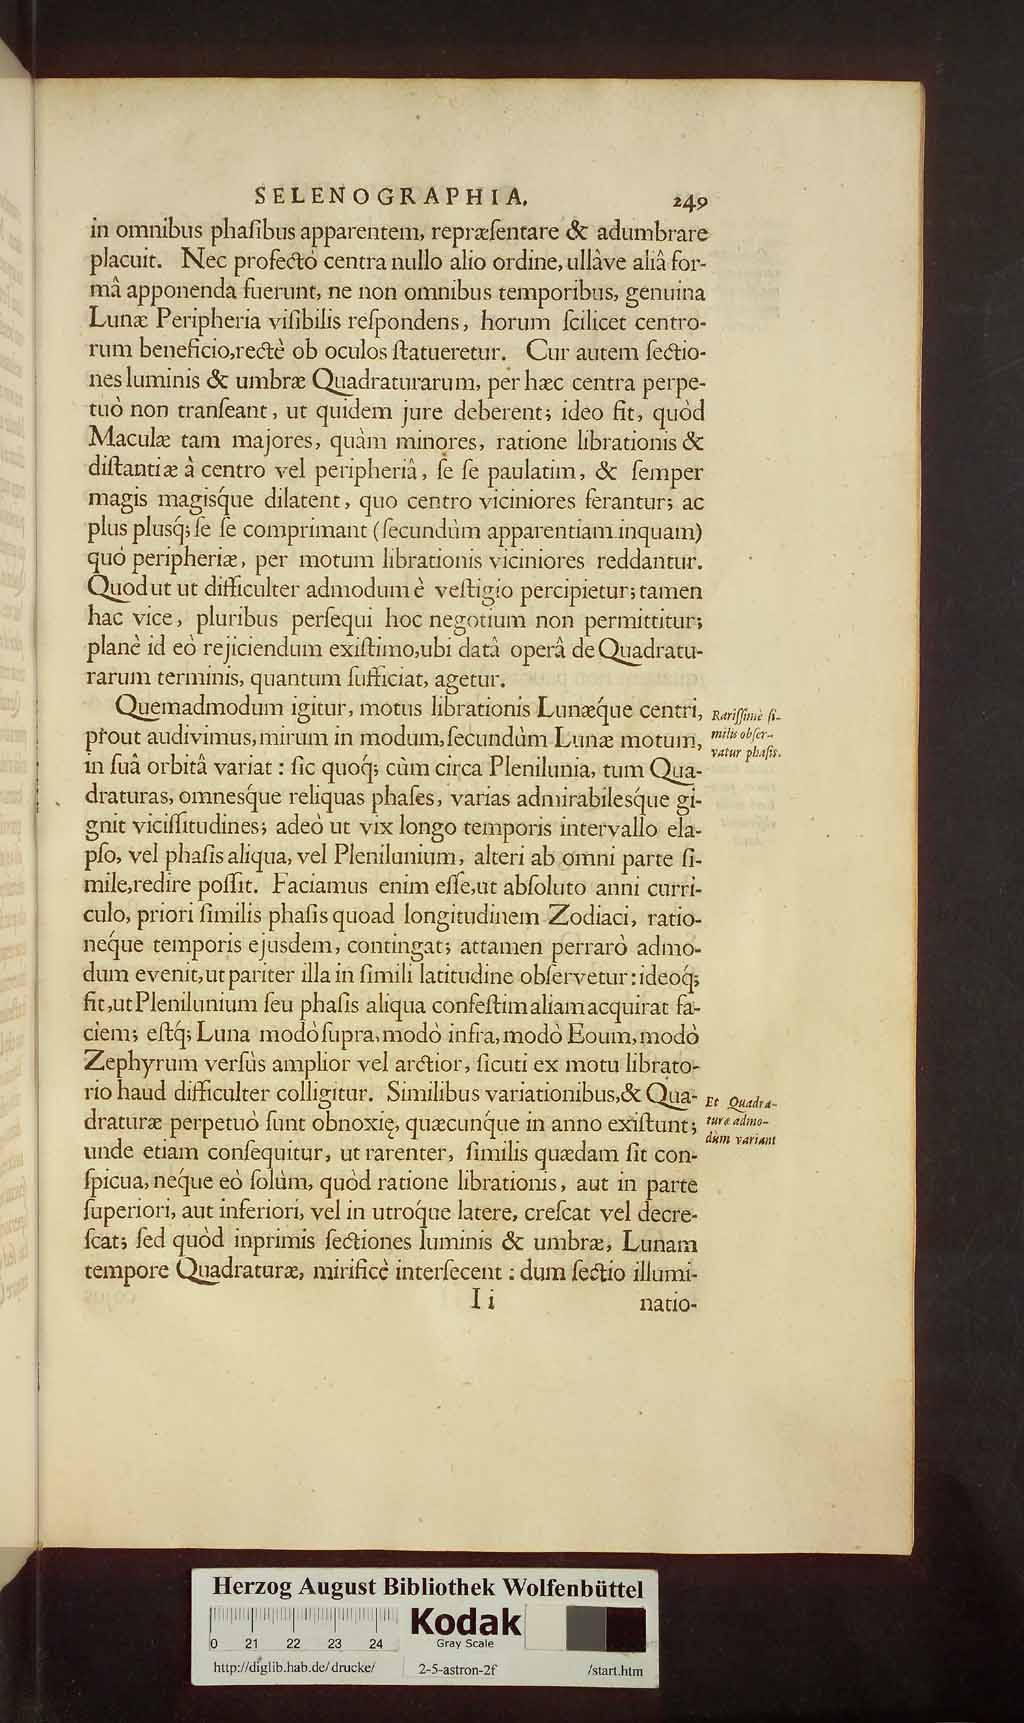 SELENOGRAPHIA. 249
in omnibus phaſibus apparentem, repræſentare & adumbrare
placuit. Nec profectò centra nullo alio ordine, ullâve aliâ for-
mâ apponenda fuerunt, ne non omnibus temporibus, genuina
Lunæ Peripheria viſibilis reſpondens, horum ſcilicet centro-
rum beneficio, rectè ob oculos ſtatueretur. Cur autem ſectio-
nes luminis & umbræ Quadraturarum, per hæc centra perpe-
tuò non tranſeant, ut quidem jure deberent; ideo fit, quòd
Maculæ tam majores, quàm minores, ratione librationis &
diſtantiæ à centro vel peripheriâ, ſe ſe paulatim, & ſemper
magis magisq́ue dilatent, quo centro viciniores ferantur; ac
plus plusq́; ſe ſe comprimant (ſecundùm apparentiam inquam)
quò peripheriæ, per motum librationis viciniores reddantur.
Quod ut ut difficulter admodum è veſtigio percipietur; tamen
hac vice, pluribus perſequi hoc negotium non permittitur;
planè id eò rejiciendum exiſtimo, ubi datâ operâ de Quadratu-
rarum terminis, quantum ſufficiat, agetur.
Quemadmodum igitur, motus librationis Lunæq́ue centri,
prout audivimus, mirum in modum, ſecundùm Lunæ motum,
in ſuâ orbitâ variat : ſic quoq́; cùm circa Plenilunia, tum Qua-
draturas, omnesq́ue reliquas phaſes, varias admirabilesq́ue gi-
gnit viciſſitudines; adeò ut vix longo temporis intervallo ela-
pſo, vel phaſis aliqua, vel Plenilunium, alteri ab omni parte ſi-
mile, redire poſſit. Faciamus enim eſſe, ut abſoluto anni curri-
culo, priori ſimilis phaſis quoad longitudinem Zodiaci, ratio-
neq́ue temporis ejusdem, contingat; attamen perrarò admo-
dum evenit, ut pariter illa in ſimili latitudine obſervetur : ideoq́;
fit, ut Plenilunium ſeu phaſis aliqua confeſtim aliam acquirat fa-
ciem; eſtq́; Luna modò ſupra, modò infra, modò Eoum, modò
Zephyrum verſùs amplior vel arctior, ſicuti ex motu librato-
rio haud difficulter colligitur. Similibus variationibus, & Qua-
draturæ perpetuò ſunt obnoxię, quæcunq́ue in anno exiſtunt;
unde etiam conſequitur, ut rarenter, ſimilis quædam ſit con-
ſpicua, neq́ue eò ſolùm, quòd ratione librationis, aut in parte
ſuperiori, aut inferiori, vel in utroq́ue latere, creſcat vel decre-
ſcat; ſed quòd inprimis ſectiones luminis & umbræ, Lunam
tempore Quadraturæ, mirificè interſecent : dum ſectio illumi-
I i natio-
Rariſſimè ſi-
milis obſer-
vatur phaſis.
Et Quadra-
turæ admo-
dùm variant
Herzog August Bibliothek Wolfenbüttel
0 21 22 23 24
Kodak
Gray Scale
http://diglib.hab.de/drucke/ 2-5-astron-2f /start.htm